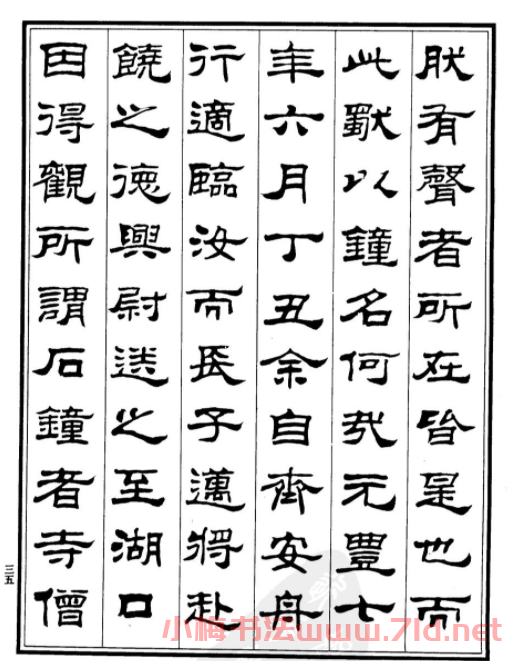 肰有聲者所在皆是也而
此獸以鐘名何哉元豐七
年六月丁丑余自齊安舟
行適臨汝而長子邁將赴
饒之德興尉送之至湖口
因得觀所謂石鐘者寺僧
三五
小梅书法www.7ld.net